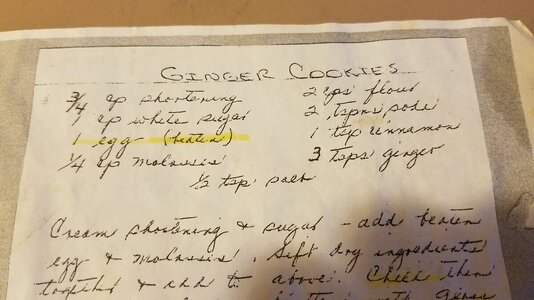 GINGER COOKIES
3/4 cp shortening
1 cp white sugar
1 egg (beaten)
1/4 cp molasses
2 cps flour
2 tspns soda
1 tsp cinnamon
3 tsps ginger
1/2 tsp salt
Cream shortening & sugar - add beaten
egg & molasses. Sift dry ingredients
together & add to above. Chill then
in